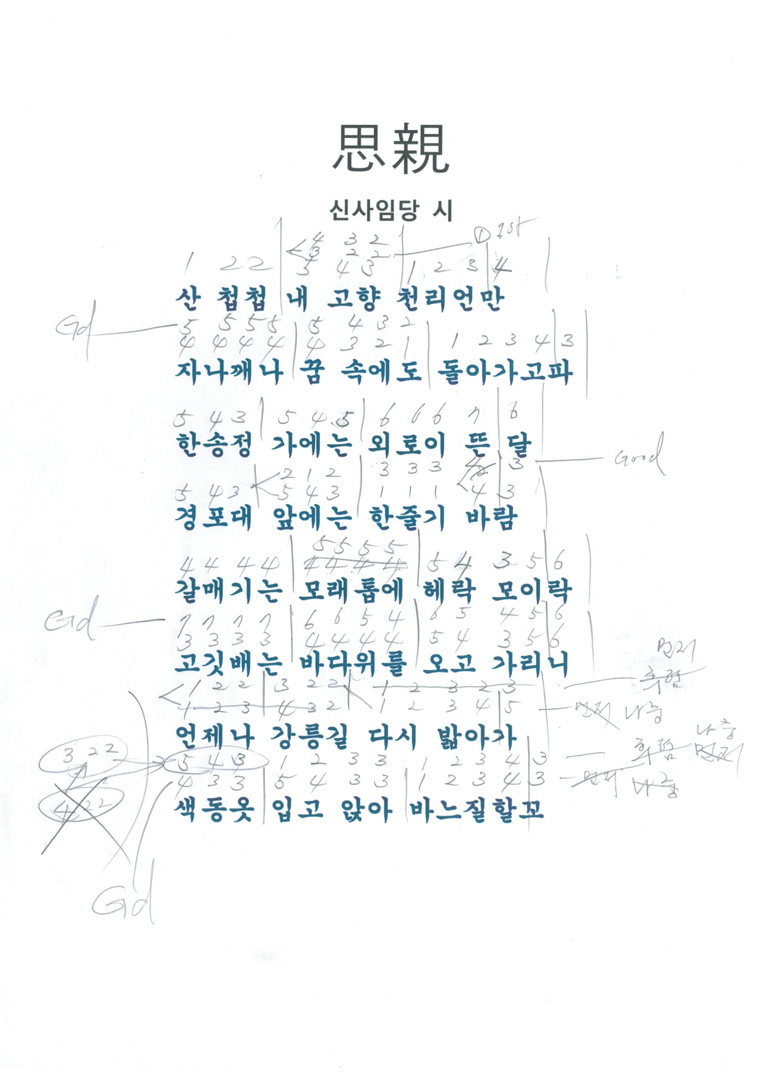 思親
신사임당 시
① 1st
4 3 2
3 2 2
1 2 2 5 4 3 1 2 3 4
산 첩첩 내 고향 천리언만
Gd
5 5 5 5 5 4 3 2
4 4 4 4 4 3 2 1 1 2 3 4 3
자나깨나 꿈 속에도 돌아가고파
5 4 3 5 4 5 6 6 6 7 6
한송정 가에는 외로이 뜬 달
2 1 2 3 3 3 3 Good
5 4 3 5 4 3 1 1 1 4 3
경포대 앞에는 한줄기 바람
5 5 5 5
4 4 4 4 4 4 4 4 5 4 3 5 6
갈매기는 모래톱에 헤락 모이락
Gd
7 7 7 7 6 6 5 4 6 5 4 5 6
3 3 3 3 4 4 4 4 5 4 3 5 6
고깃배는 바다위를 오고 가리니
먼저
1 2 2 3 2 2 1 2 3 2 3
1 2 3 4 3 2 1 2 3 4 5 먼저 나중
언제나 강릉길 다시 밟아가
나중
3 2 2 5 4 3 1 2 3 3 1 2 3 4 3 먼저
4 2 2 4 3 3 5 4 3 3 1 2 3 4 3 먼저 나중
색동옷 입고 앉아 바느질할꼬
Gd